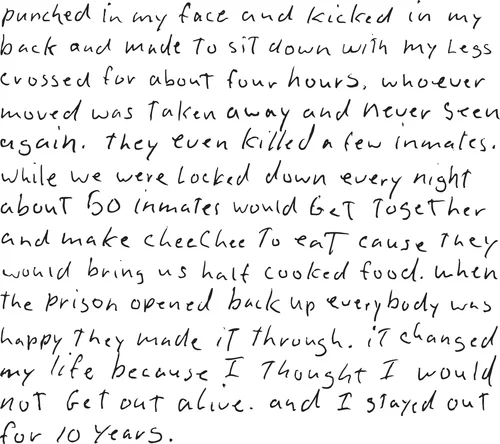 punched in my face and kicked in my
back and made to sit down with my legs
crossed for about four hours. whoever
moved was taken away and never seen
again. they even killed a few inmates.
while we were locked down every night
about 50 inmates would get together
and make cheechee to eat cause they
would bring us half cooked food. when
the prison opened back up everybody was
happy they made it through. it changed
my life because I thought I would
not get out alive. and I stayed out
for 10 years.